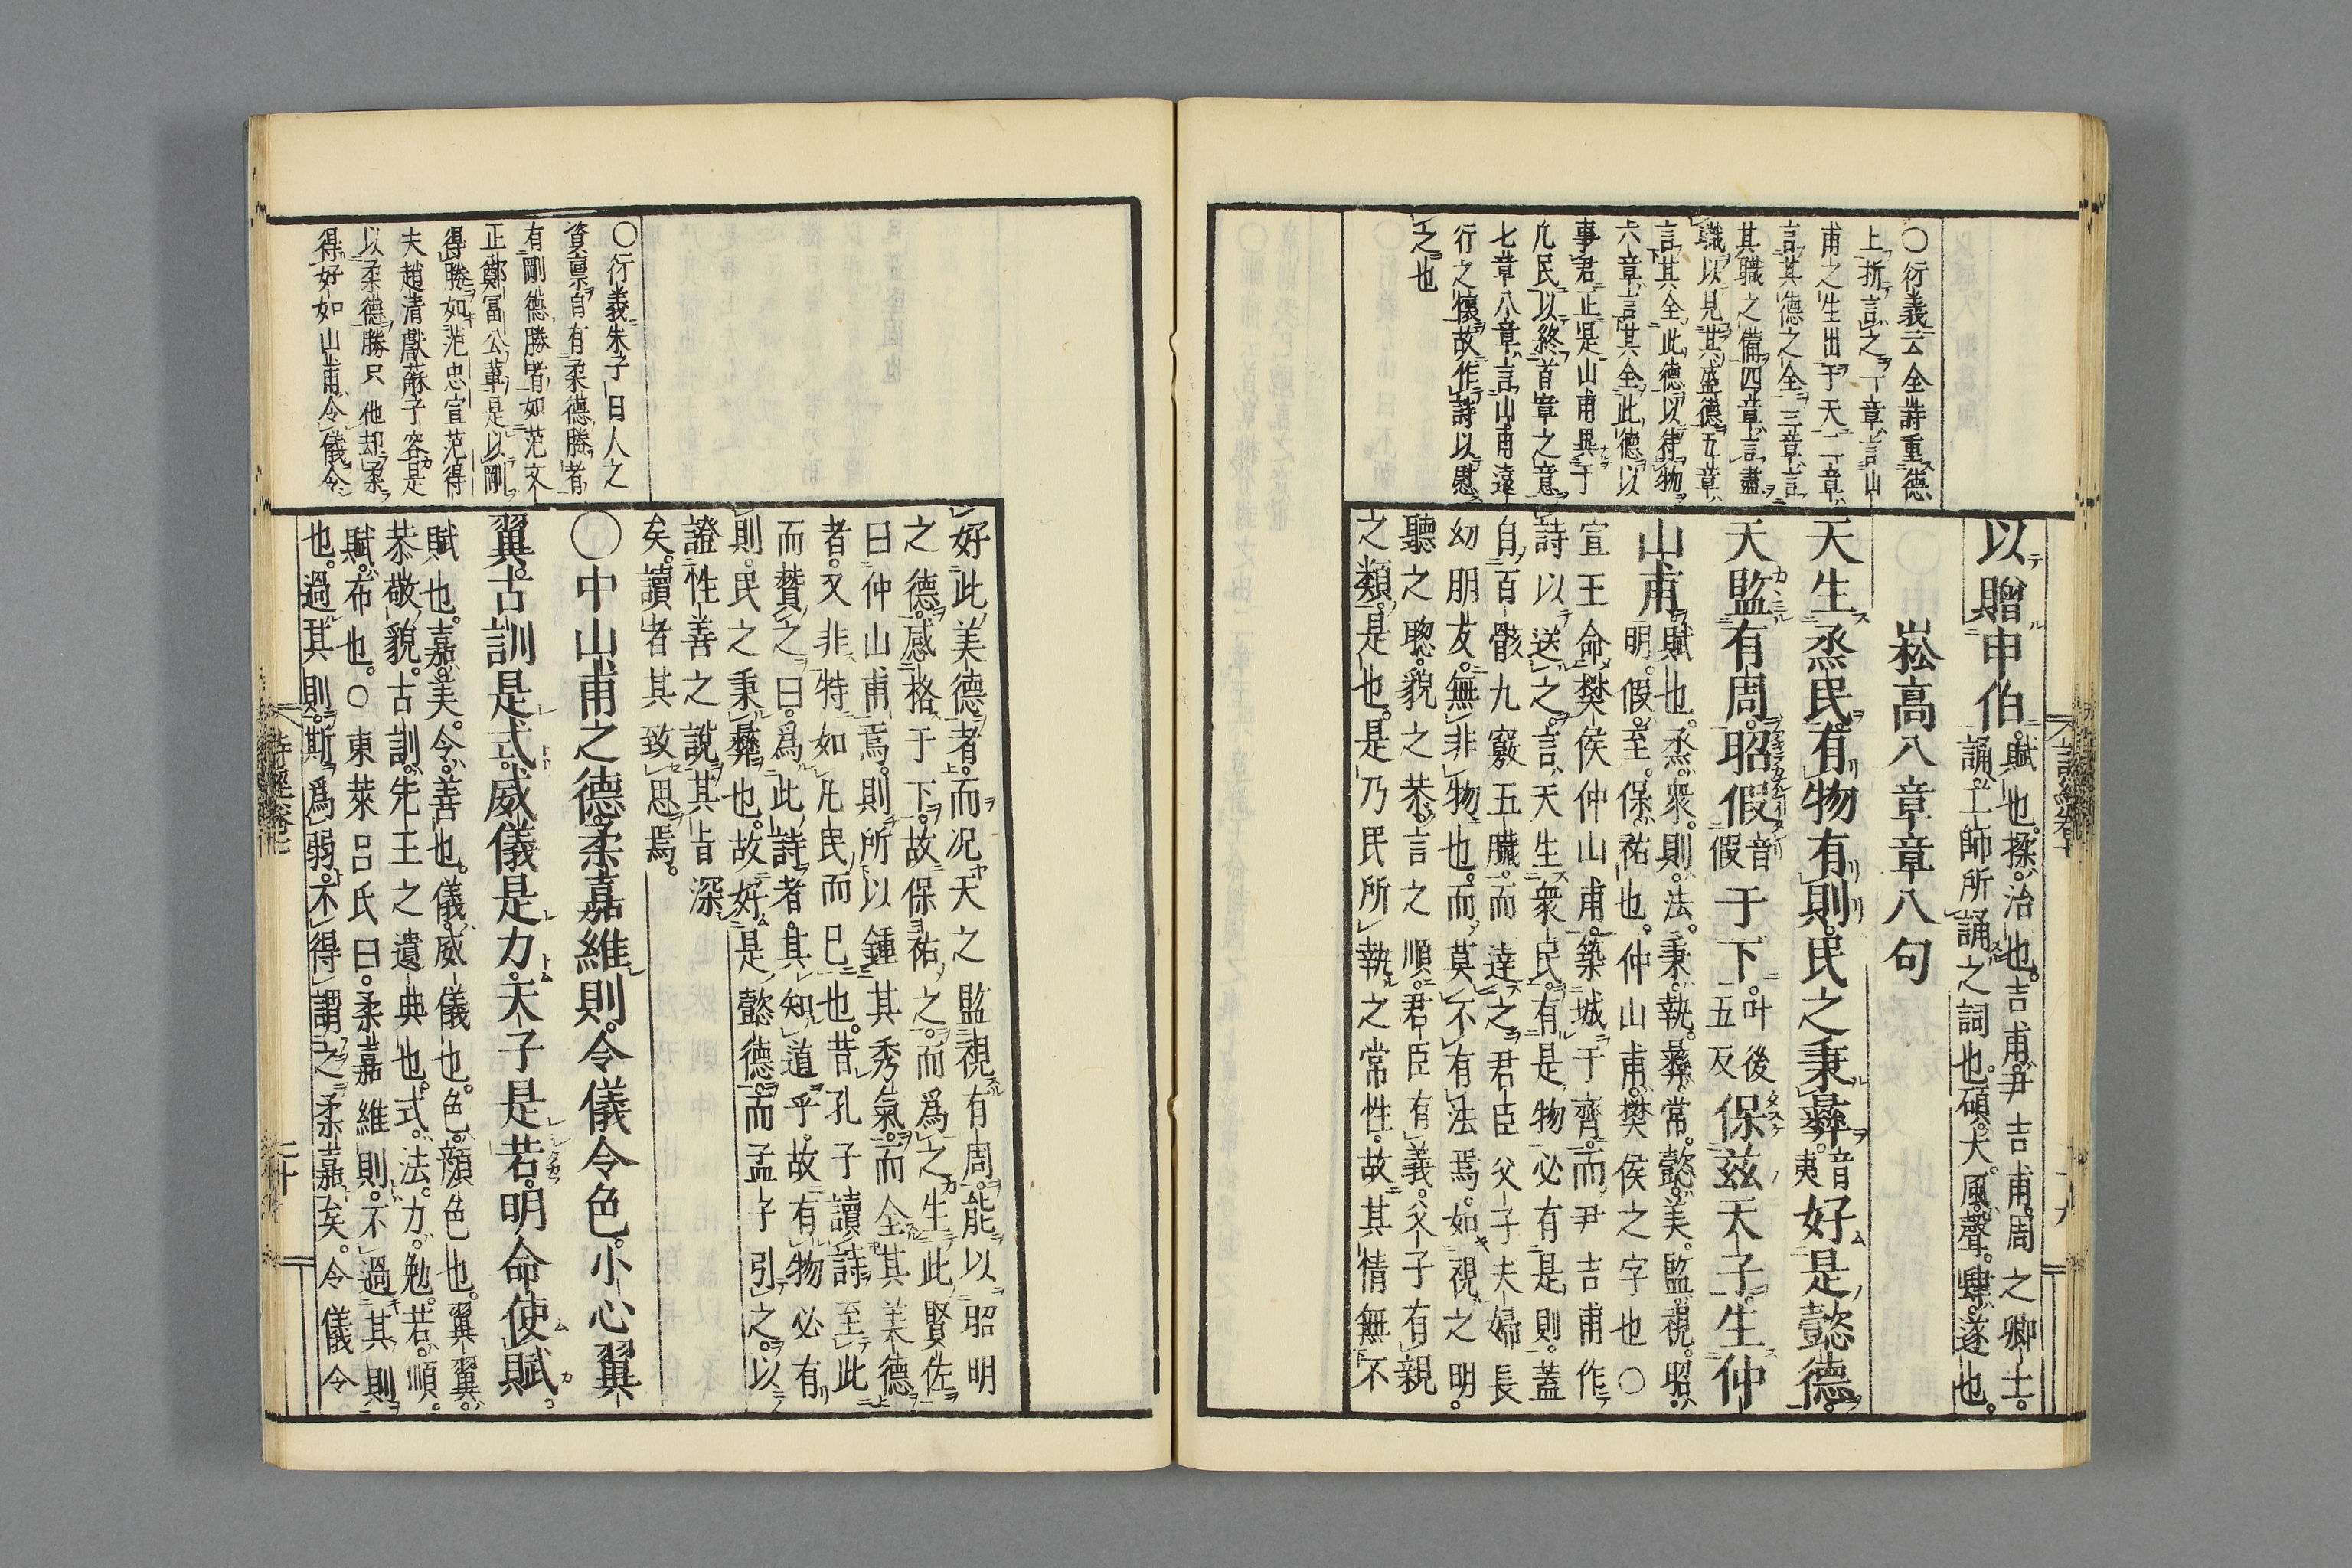 以贈申伯。賦也。揉。治也。吉甫。尹吉甫。周之卿士。
誦。工師所誦之詞也。碩。大。風。聲。肆。遂也。
崧高八章章八句
天生烝民。有物有則。民之秉彝。音夷好是懿德。
天監有周。昭假音假于下。叶後五反保茲天子。生仲
山甫。賦也。烝。衆。則。法。秉。執。彝。常。懿。美。監。視。昭。
明。假。至。保。祐也。仲山甫。樊侯之字也○
宣王命樊侯仲山甫。築城于齊。而尹吉甫作
詩以送之。言天生衆民。有是物必有是則。蓋
自百骸九竅五臟。而達之君臣父子夫婦長
幼朋友。無非物也。而莫不有法焉。如視之明。
聽之聰。貌之恭。言之順。君臣有義。父子有親
之類。是也。是乃民所執之常性。故其情無不
○衍義云全詩重德
上折言之一章言山
甫之生出于天二章
言其德之全三章言
其職之備四章言盡
職以見其盛德五章
言其全此德以待物
六章言其全此德以
事君正是山甫異于
凡民以終首章之意
七章八章言山甫遠
行之懷故作詩以慰
之也
好此美德者。而况天之監視有周。能以昭明
之德。感格于下。故保祐之。而爲之生此賢佐
曰仲山甫焉。則所以鍾其秀氣。而全其美德
者。又非特如凡民而已也。昔孔子讀詩至此
而贊之曰。爲此詩者。其知道乎。故有物必有
則。民之秉彝也。故好是懿德。而孟子引之。以
證性善之說。其旨深
矣。讀者其致思焉。
○中山甫之德。柔嘉維則。令儀令色。小心翼
翼。古訓是式。威儀是力。天子是若。明命使賦。
賦也。嘉。美。令。善也。儀。威儀也。色。顔色也。翼翼。
恭敬貌。古訓。先王之遺典也。式。法。力。勉。若。順。
賦。布也。○東萊呂氏曰。柔嘉維則。不過其則
也。過其則。斯爲弱。不得謂之柔嘉矣。令儀令
○衍義朱子曰人之
資禀自有柔德勝者
有剛德勝者如范文
正鄭富公輩是以剛
得勝如范忠宣范得
夫趙清獻蘇子容是
以柔德勝只他却柔
得好如山甫令儀令